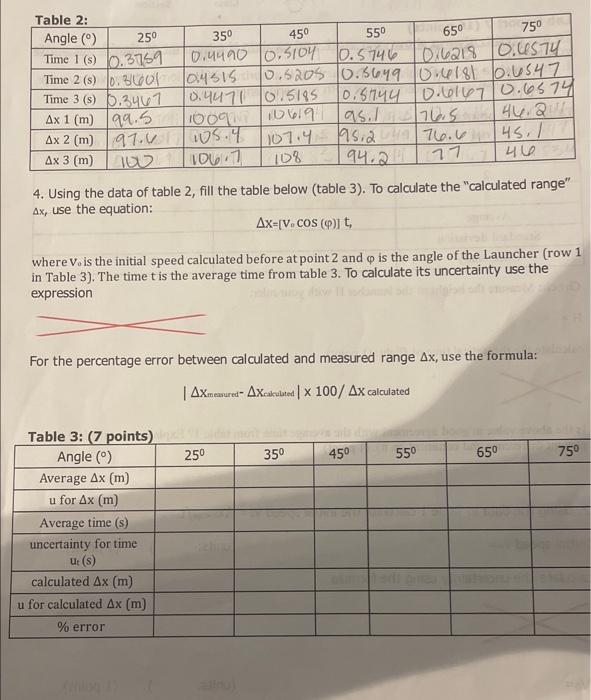 Table 2:
Angle (º) 25⁰ 35⁰ 45⁰ 55⁰ 65⁰ 75⁰
Time 1 (s) 0.3769 0.4490 0.5104 0.5746 0.6218 0.6574
Time 2 (s) 0.3601 0.4515 0.5205 0.5649 0.6181 0.6547
Time 3 (s) 0.3467 0.4471 0.5185 0.5744 0.6167 0.6574
Δx 1 (m) 99.5 1009 106.9 95.1 76.5 46.2
Δx 2 (m) 97.6 105.4 107.4 95.2 76.6 45.1
Δx 3 (m) 100 106.7 108 94.2 77 46
4. Using the data of table 2, fill the table below (table 3). To calculate the "calculated range"
Δx, use the equation:
Δx=[Vₒ COS (φ)] t,
where Vₒ is the initial speed calculated before at point 2 and φ is the angle of the Launcher (row 1
in Table 3). The time t is the average time from table 3. To calculate its uncertainty use the
expression
For the percentage error between calculated and measured range Δx, use the formula:
| Δxmeasured- Δxcalculated | x 100/ Δx calculated
Table 3: (7 points)
Angle (º) 25⁰ 35⁰ 45⁰ 55⁰ 65⁰ 75⁰
Average Δx (m)
u for Δx (m)
Average time (s)
uncertainty for time
ut (s)
calculated Δx (m)
u for calculated Δx (m)
% error